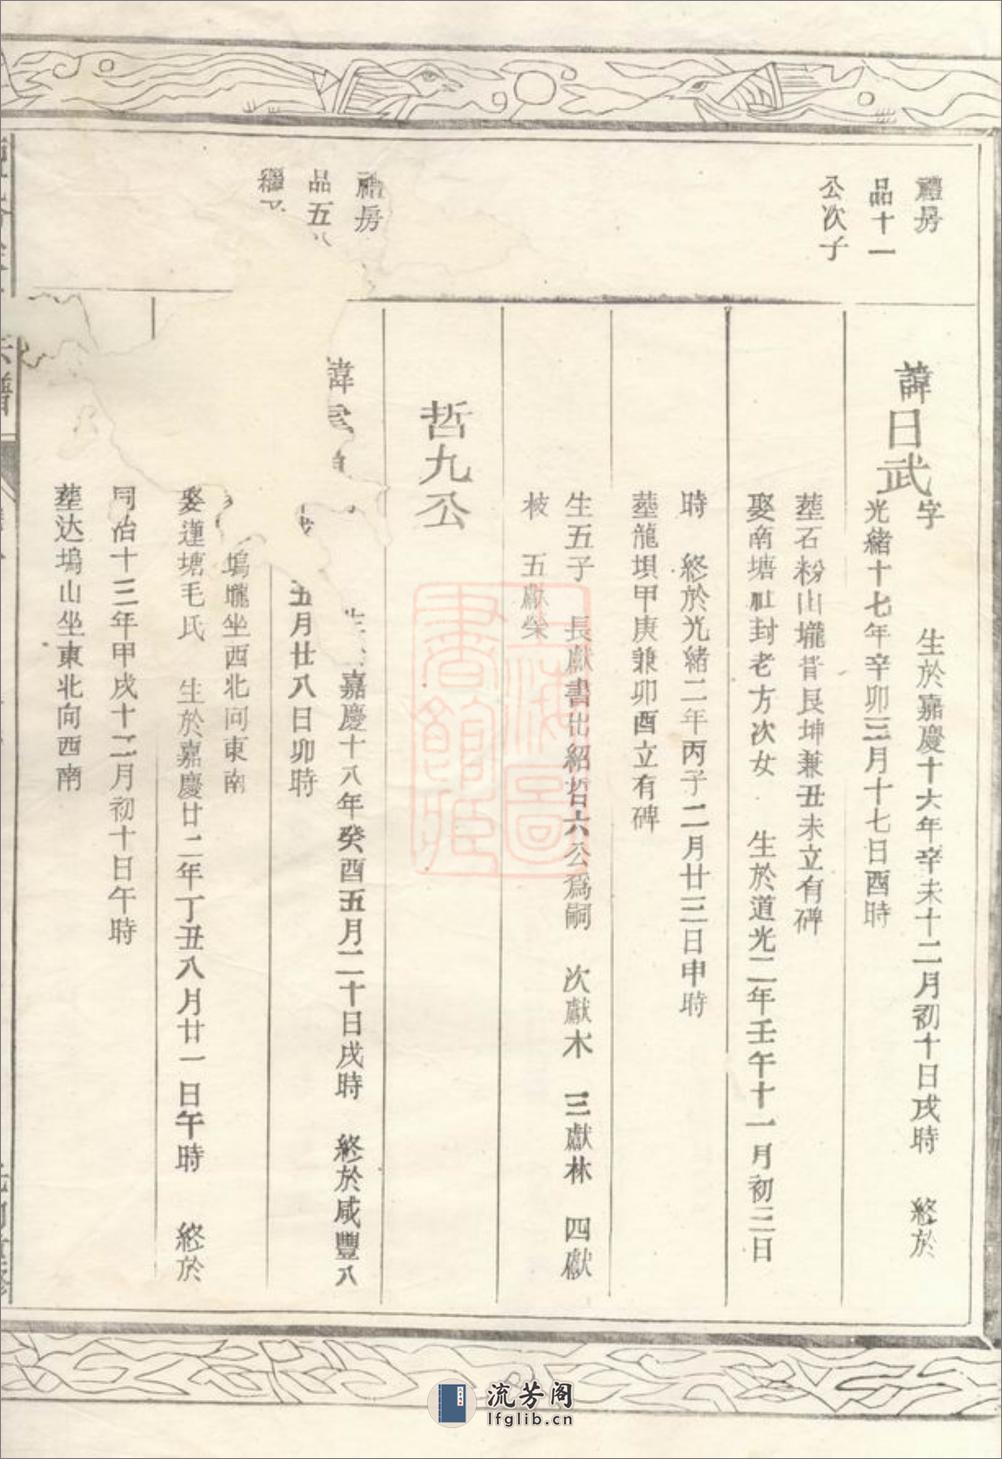 禮房
品十一
公次子
諱日武字　生於嘉慶十六年辛未十二月初十日戌時　終於
光緒十七年辛卯三月十七日酉時
葬石粉山壠背艮坤兼丑未立有碑
娶南塘社封老方次女　生於道光二年壬午十一月初三日
時　終於光緒二年丙子二月廿三日申時
葬龍垻甲庚兼卯酉立有碑
生五子　長獻書出紹哲六公爲嗣　次獻木　三獻林　四獻
枝　五獻榮
哲九公
禮房
品五
繼
諱
嘉慶十八年癸酉五月二十日戌時　終於咸豐八
五月廿八日卯時
塢壠坐西北向東南
娶蓮塘毛氏　生於嘉慶廿二年丁丑八月廿一日午時　終於
同治十三年甲戌十二月初十日午時
葬达塢山坐東北向西南
譜
上海圖
書館藏
流芳阁
lfglib.cn